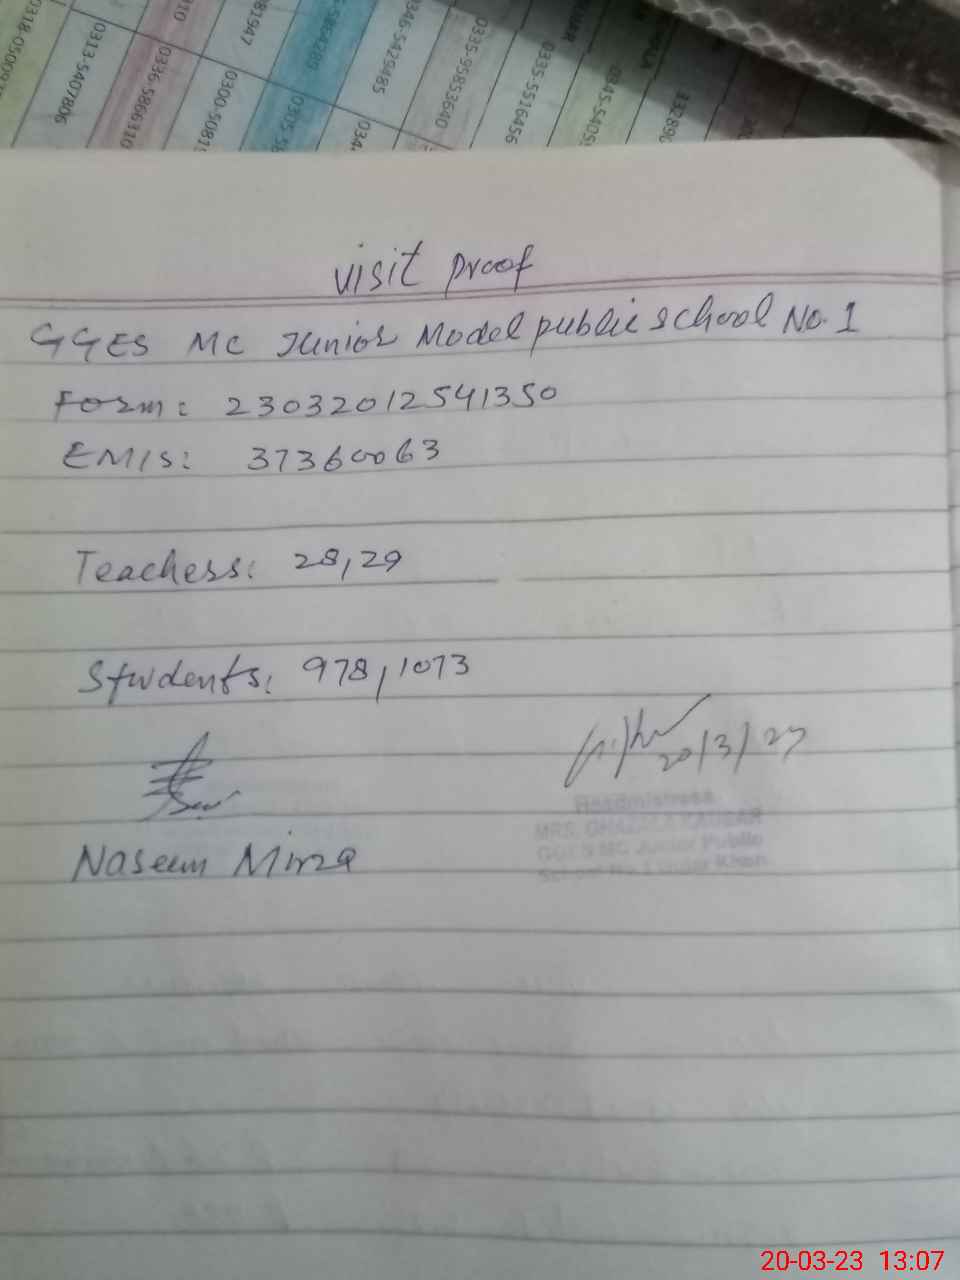 0313-5407806
0336-5866110
81947
0346-5429485
0335-95853640
0335-5516456
visit proof
GGES MC Junior Model public school No. 1
Form: 23032012541350
EMIS: 37360063
Teachers: 28,29
Students: 978,1073
20/3/23
Headmistress
MRS. GHAZALA KAUSAR
GGES MC Junior Public
School No.1
Naseem Mirza
20-03-23 13:07